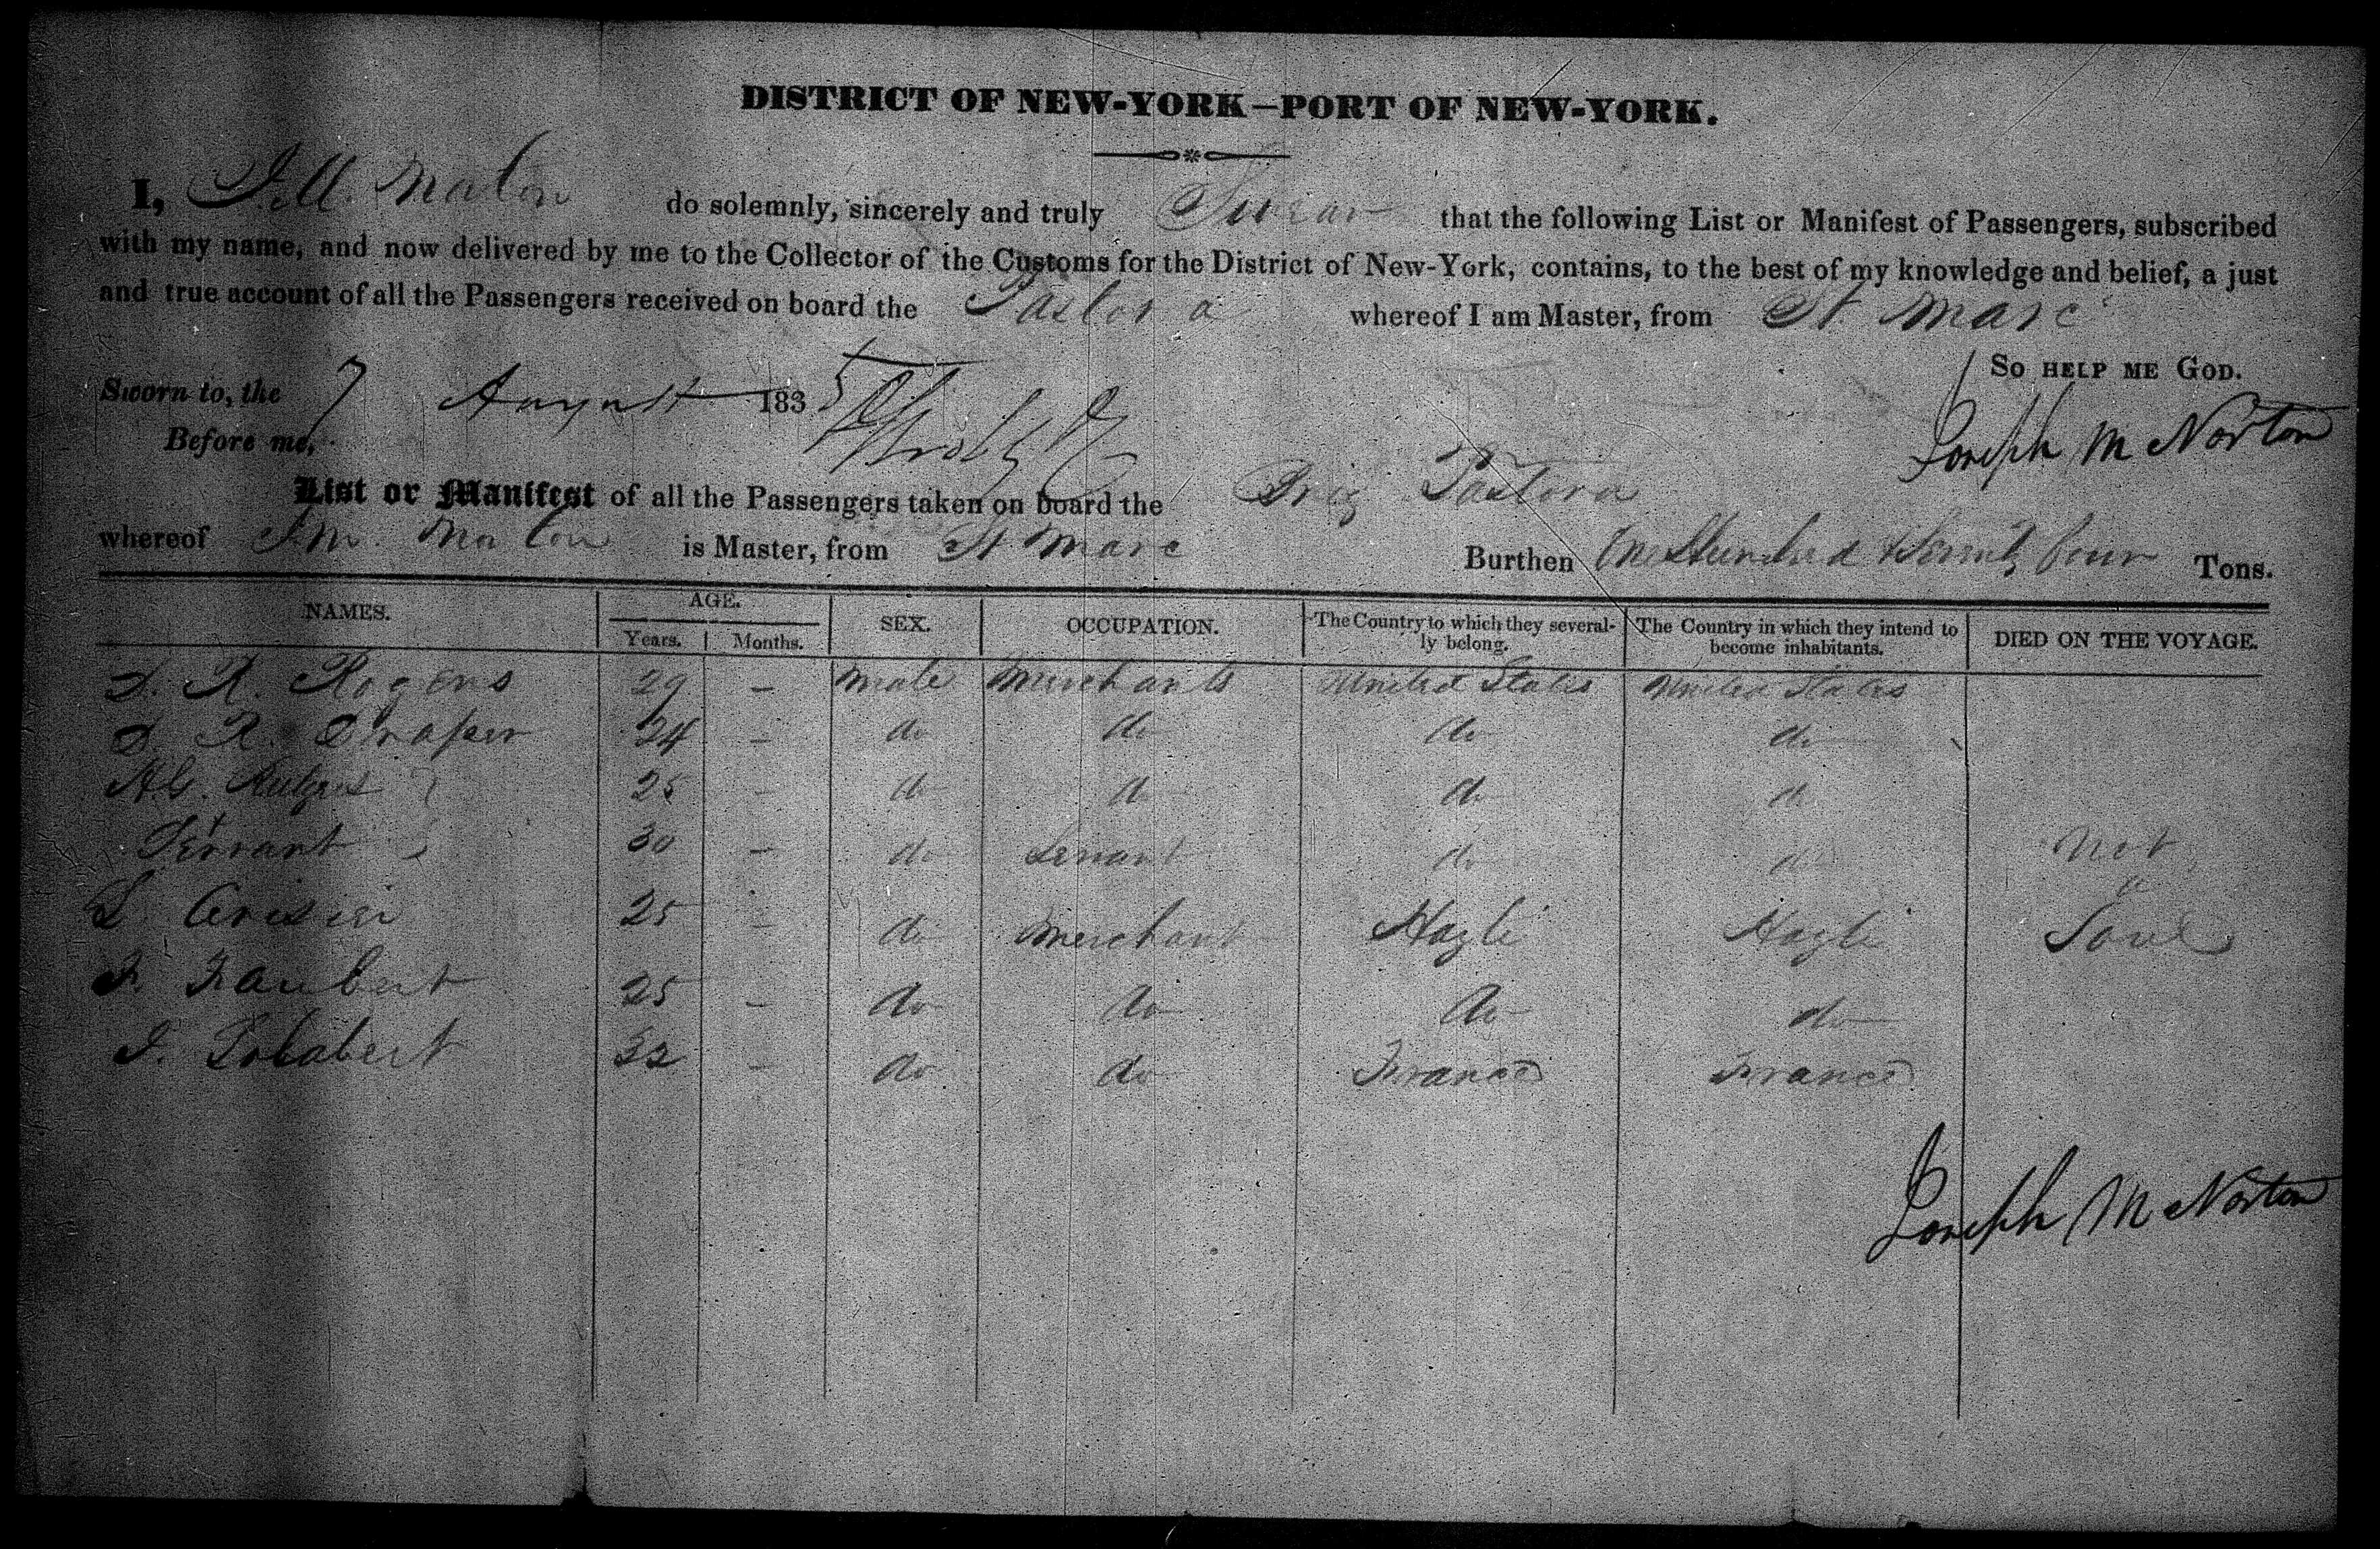 DISTRICT OF NEW-YORK—PORT OF NEW-YORK.
I, J. M. do solemnly, sincerely and truly Swear that the following List or Manifest of Passengers, subscribed
with my name, and now delivered by me to the Collector of the Customs for the District of New-York, contains, to the best of my knowledge and belief, a just
and true account of all the Passengers received on board the Pastora whereof I am Master, from St Marc
So HELP ME GOD.
Sworn to, the 7 August 1835
Joseph M Norton
Before me,
List or Manifest of all the Passengers taken on board the Brig Pastora
whereof J. M. is Master, from St Marc Burthen One Hundred & Seventy four Tons.
NAMES. AGE. SEX. OCCUPATION. The Country to which they several- The Country in which they intend to DIED ON THE VOYAGE.
Years. Months. ly belong. become inhabitants.
D. R. Rogers 29 - Male Merchants United States United States
D. R. Draper 24 - do do do do
25 - do do do do
Servant 30 - do Servant do do Not
a
L. 25 - do Merchant Hayti Hayti Soul
F. Faubert 25 - do do do do
J. 32 - do do France France
Joseph M Norton